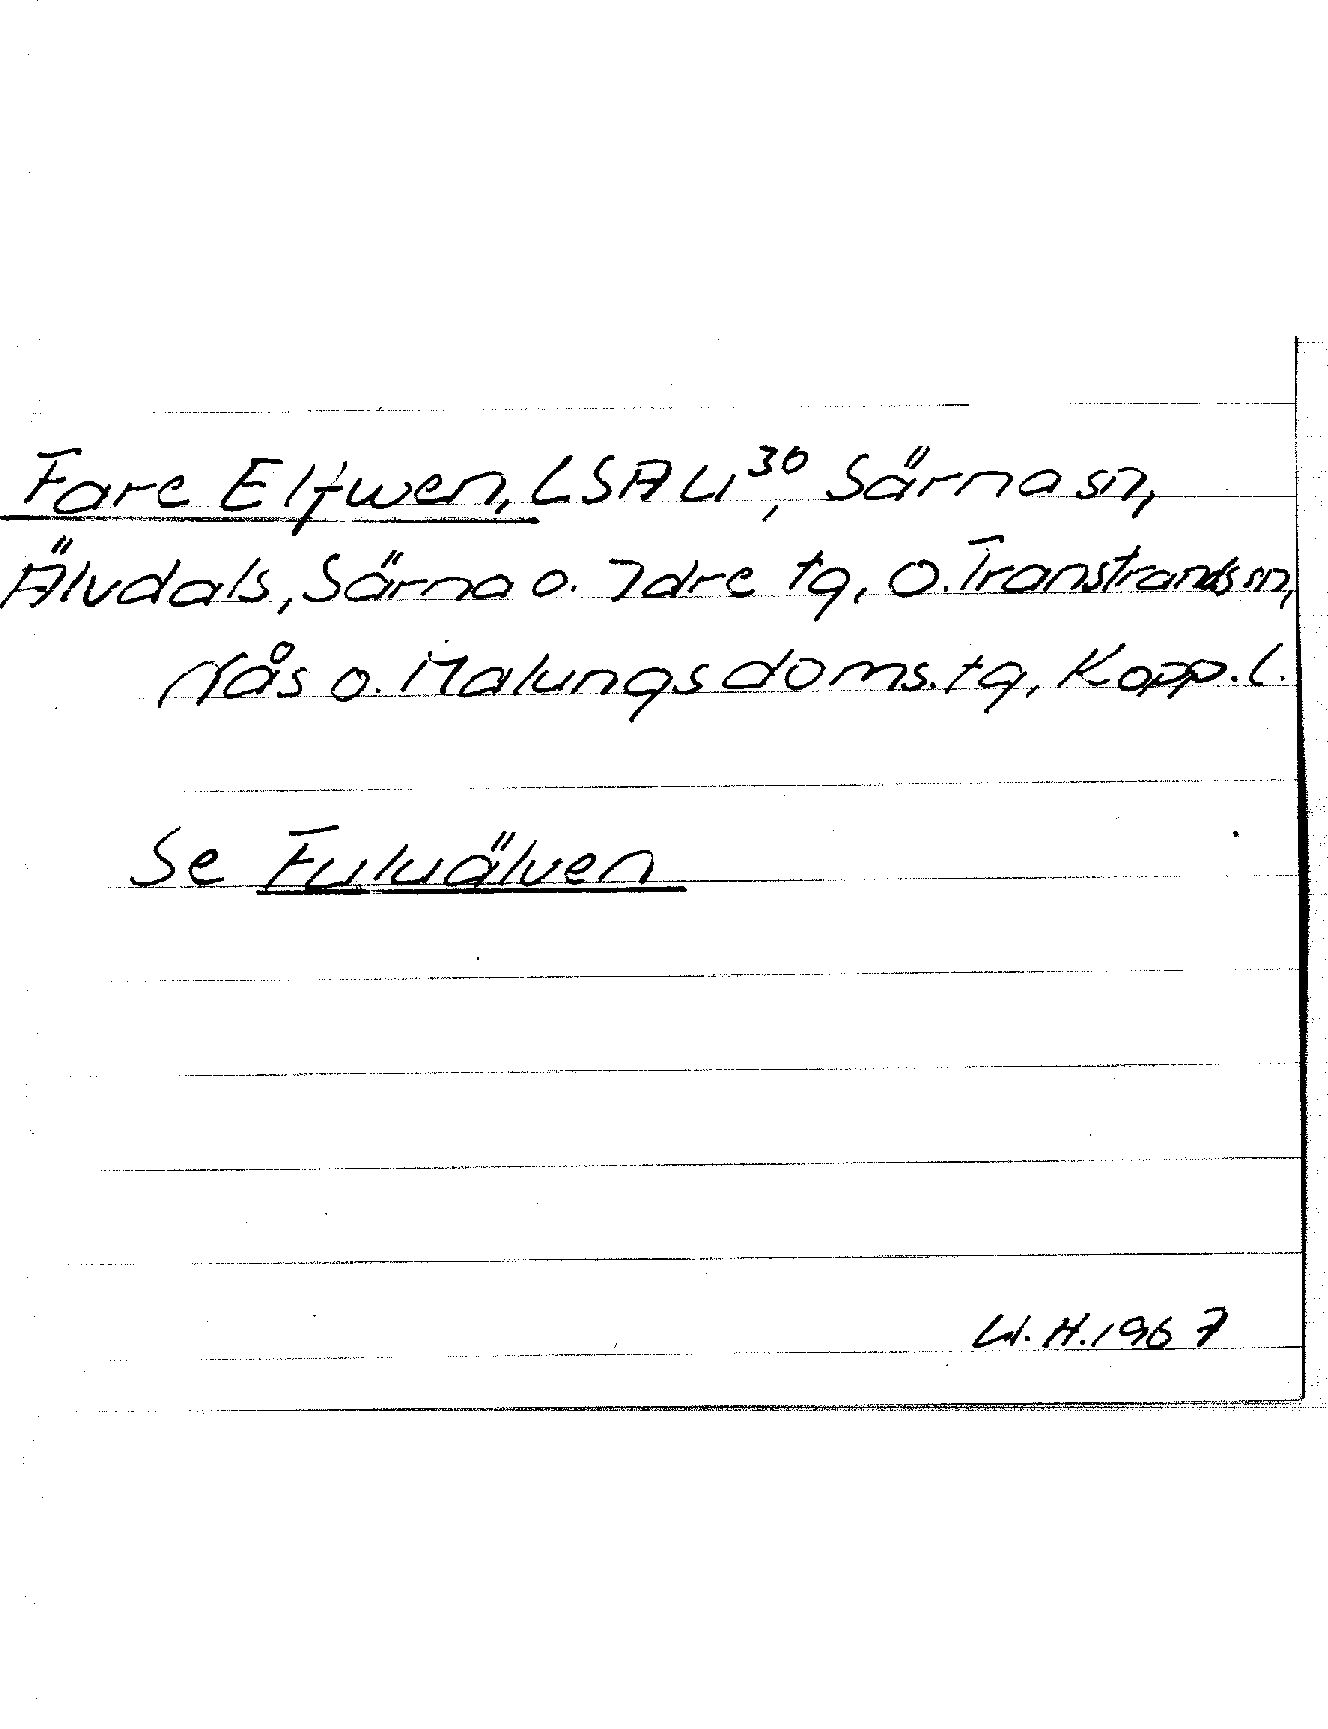 Fare Elfwen, LSA U³⁰, Särna sn,
Älvdals, Särna o. Idre tg, o. Transtrands sn,
Nås o. Malungs doms.tg, Kopp. l.
Se Fuluälven
W.H. 1967